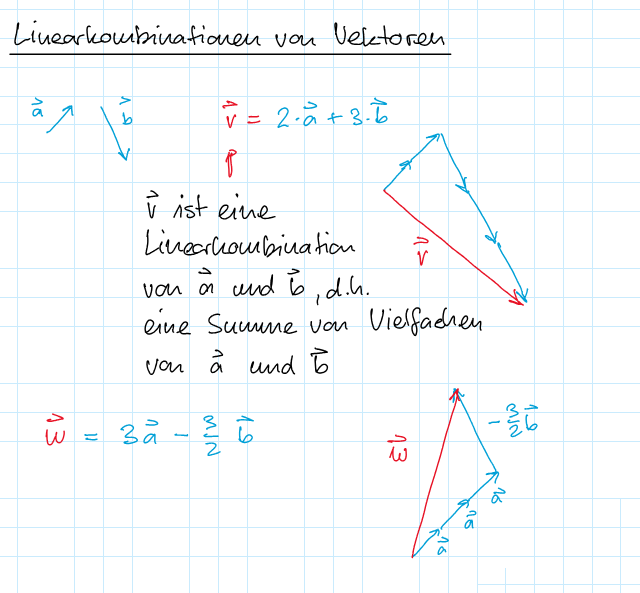 Linearkombinationen von Vektoren
a⃗ b⃗ v⃗ = 2·a⃗ + 3·b⃗
v⃗ ist eine
Linearkombination
von a⃗ und b⃗, d.h.
eine Summe von Vielfachen
von a⃗ und b⃗
v⃗
w⃗ = 3a⃗ - 3/2 b⃗
w⃗
-3/2 b⃗
a⃗
a⃗
a⃗